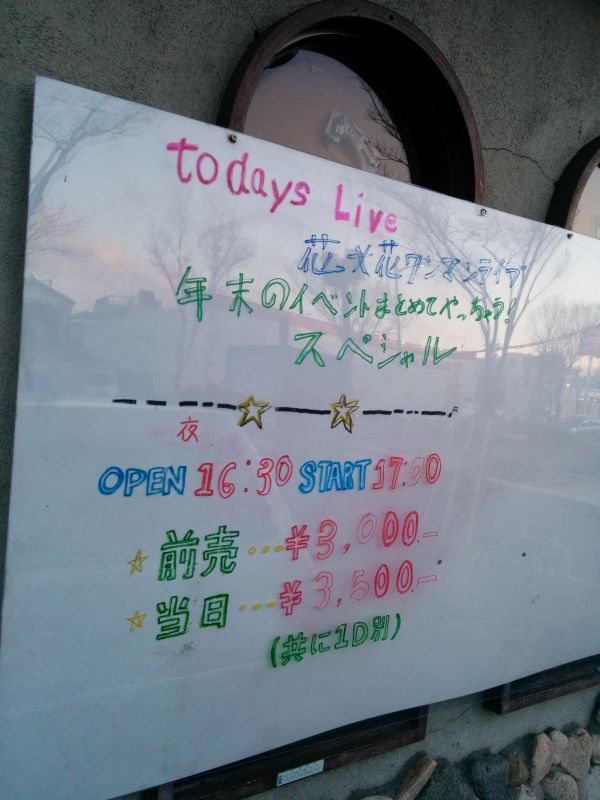 todays Live
花×花ワンマンライブ
年末のイベントまとめてやっちゃう!
スペシャル
夜
OPEN 16:30 START 17:00
☆前売…¥3,000.-
☆当日…¥3,500.-
(共に1D別)